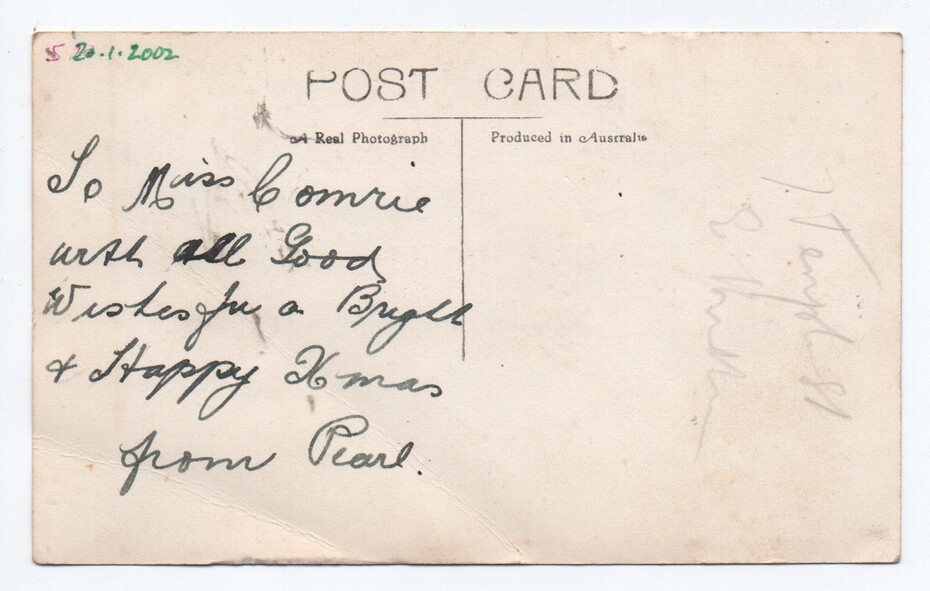 S 20.1.2002
POST CARD
A Real Photograph
Produced in Australia
To Miss Comrie
with all Good
Wishes for a Bright
& Happy Xmas
from Pearl.